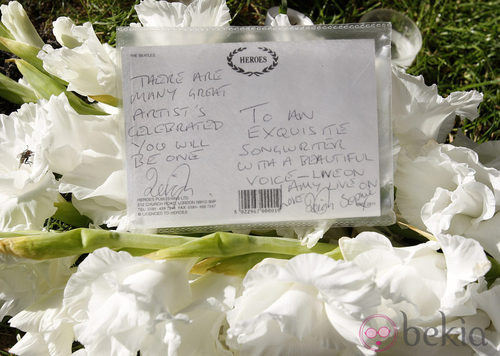 THE BEATLES
HEROES
THERE ARE
MANY GREAT
ARTIST'S
CELEBRATED
YOU WILL
BE ONE
TO AN
EXQUISITE
SONGWRITER
WITH A BEAUTIFUL
VOICE - LIVE ON
AMY LIVE ON
LOVE
HEROES PUBLISHING LTD
© LICENCED TO HEROES
bekia